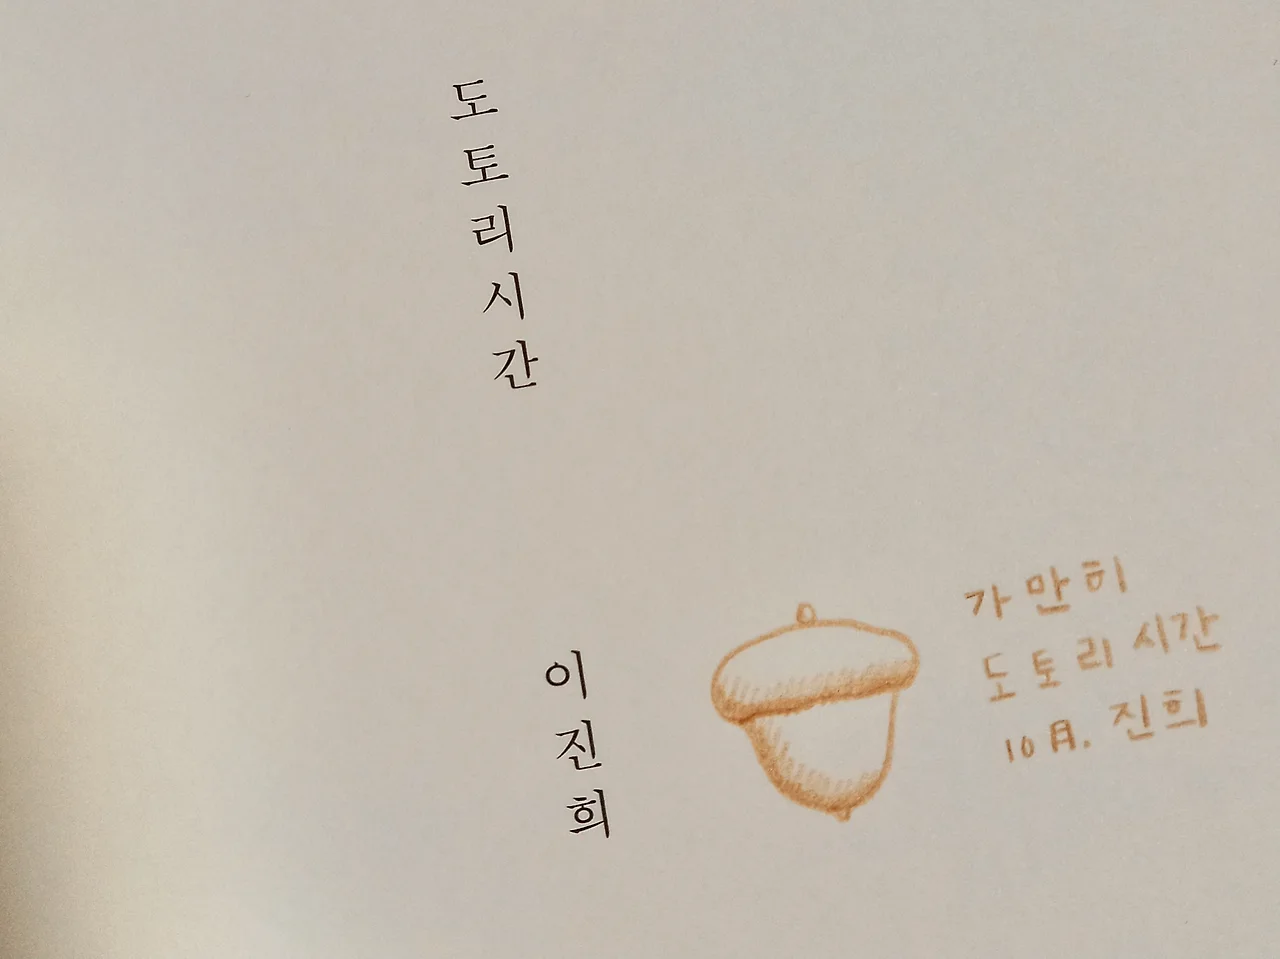 도토리시간
이진희
가만히
도토리 시간
10月. 진희